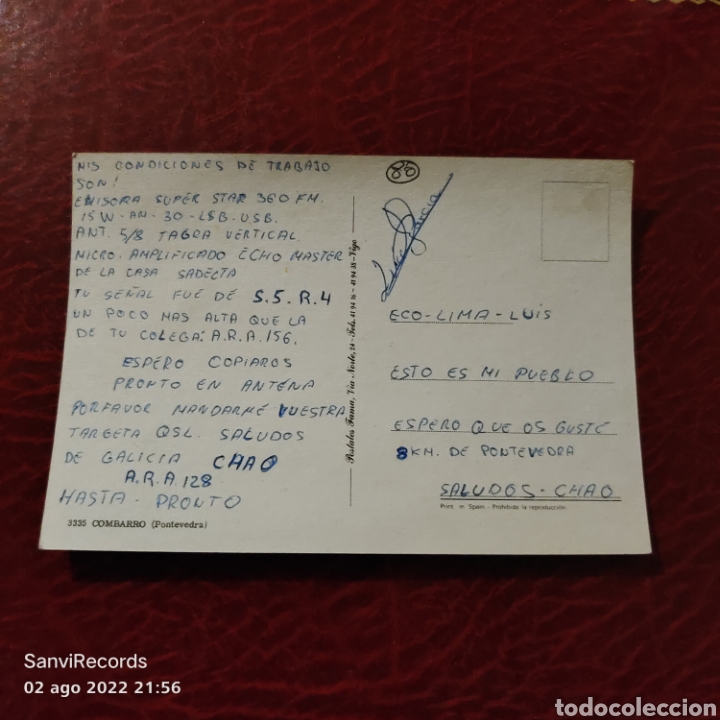 MIS CONDICIONES DE TRABAJO
SON!
EMISORA SUPER STAR 360 FM.
15 W-AN-30-LSB-USB.
ANT. 5/8 TAGRA VERTICAL
MICRO. AMPLIFICADO ECHO MASTER
DE LA CASA SADELTA
TU SEÑAL FUE DE S.5.R.4
UN POCO MAS ALTA QUE LA
DE TU COLEGA: A.R.A 156.
ESPERO COPIAROS
PRONTO EN ANTENA
PORFAVOR MANDARME VUESTRA
TARGETA QSL. SALUDOS
DE GALICIA CHAO
A.R.A.128
HASTA-PRONTO
3335 COMBARRO (Pontevedra)
Postales Fama, Vía Norte, 24 - Tels. 41 94 16 - 41 94 38 - Vigo
85
ECO-LIMA-LUIS
ESTO ES MI PUEBLO
ESPERO QUE OS GUSTE
8KM. DE PONTEVEDRA
SALUDOS-CHAO
Print in Spain - Prohibida la reproducción
SanviRecords
02 ago 2022 21:56
todocoleccion